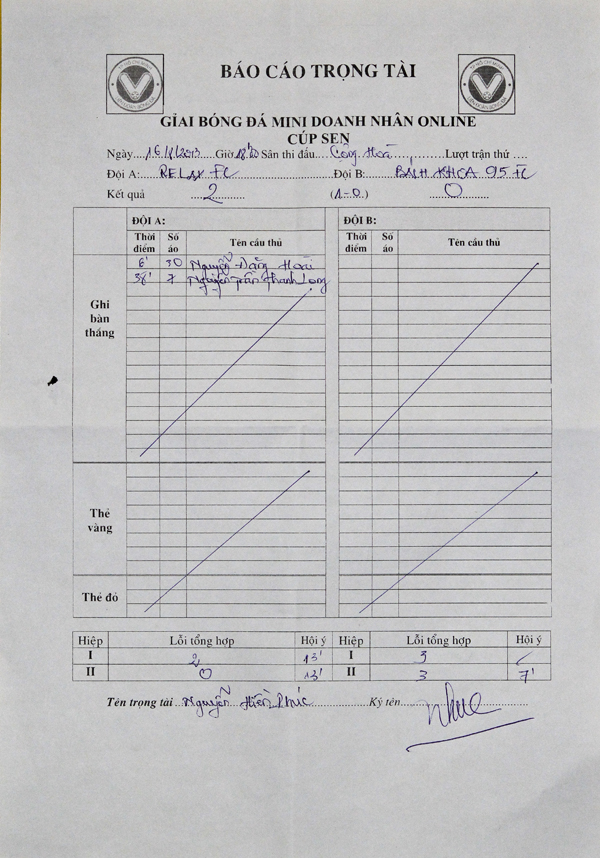 BÁO CÁO TRỌNG TÀI
GIẢI BÓNG ĐÁ MINI DOANH NHÂN ONLINE
CÚP SEN
Ngày Giờ Sân thi đấu Cộng Hoà Lượt trận thứ
Đội A: RELAX FC Đội B: BÁCH KHOA 95 FC
Kết quả 2 (1-0) 0
ĐỘI A: ĐỘI B:
Thời điểm Số áo Tên cầu thủ Thời điểm Số áo Tên cầu thủ
Ghi bàn thắng
6' 30 Nguyễn Đăng Hoài
38' 7 Nguyễn Trần Thanh Long
Thẻ vàng
Thẻ đỏ
Hiệp Lỗi tổng hợp Hội ý Hiệp Lỗi tổng hợp Hội ý
I 2 13' I 3
II 0 13' II 3 7'
Tên trọng tài Nguyễn Hiền Phúc Ký tên